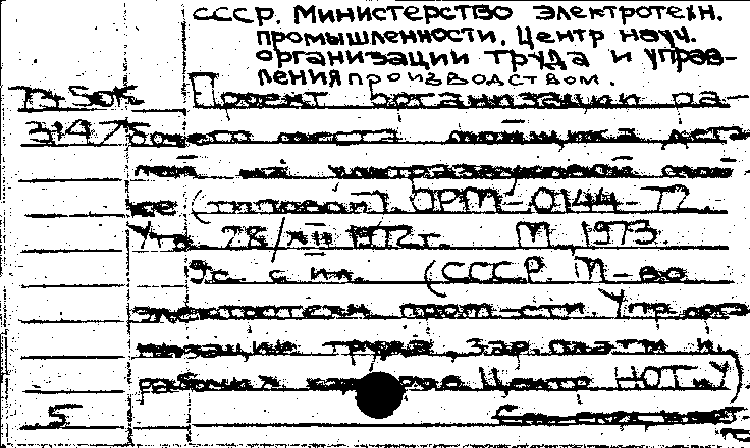 СССР. Министерство электротехн.
промышленности. Центр науч.
организации труда и управ-
ления производством.
Проект организации ра-
3147 бочего места мойщика дета
лей на ультразвуковой мой
ке (типовой). ОРМ-0144-Т2.
Утв. 28/XII 1972г. М. 1973.
9с. с ил. (СССР. М-во
электротехн. пром-сти. Упр. орга
низации труда, зар. платы и
рабочих кадров. Центр НОТиУ)
5